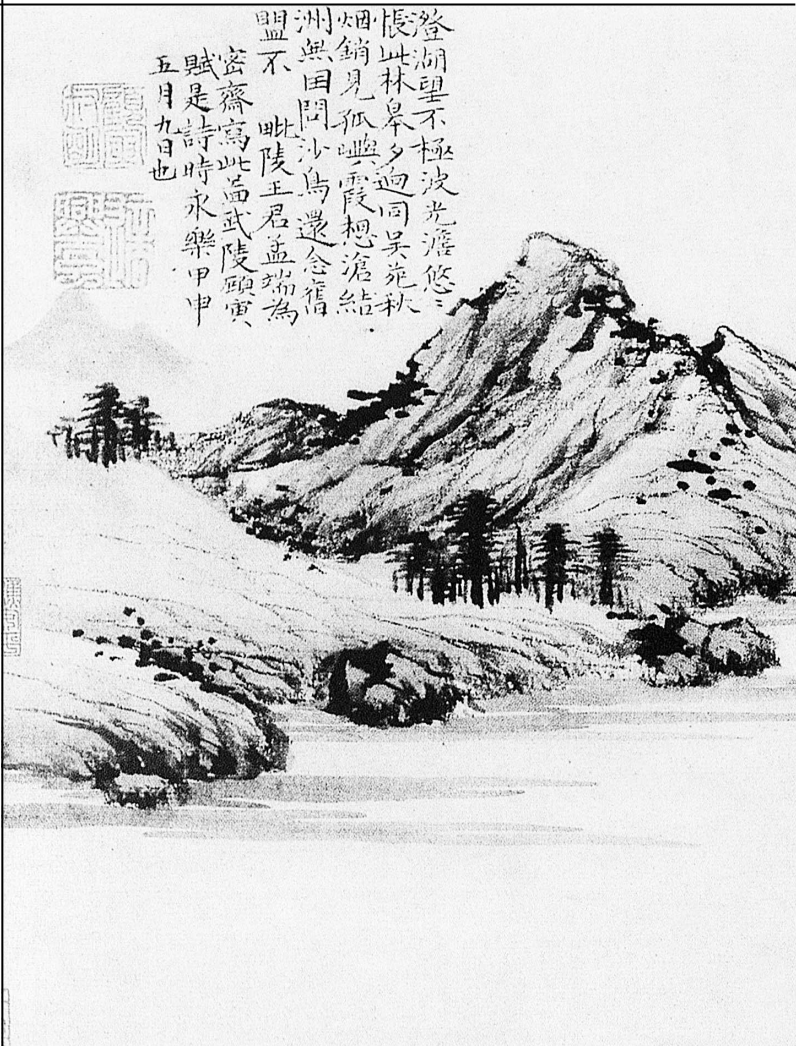 澄湖望不極波光澹悠〻
悵此林皋夕逈同吳苑秋
烟銷見孤嶼霞想滄結
洲無由問沙鳥還念舊
盟不 毗陵王君孟端為
密齋寫此啚武陵顧寅
賦是詩時永樂甲申
五月九日也